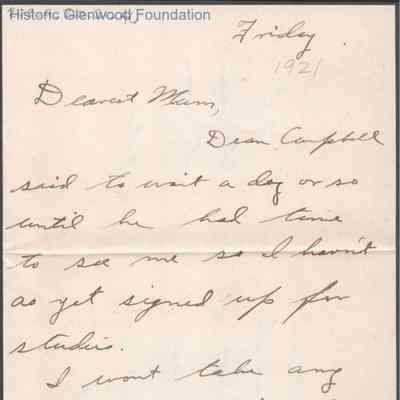 Historic Glenwood Foundation
Friday
1921
Dearest Mum,
Dean Campbell
said to wait a day or so
until he had time
to see me so I havn't
as yet signed up for
studies.
I wont take any